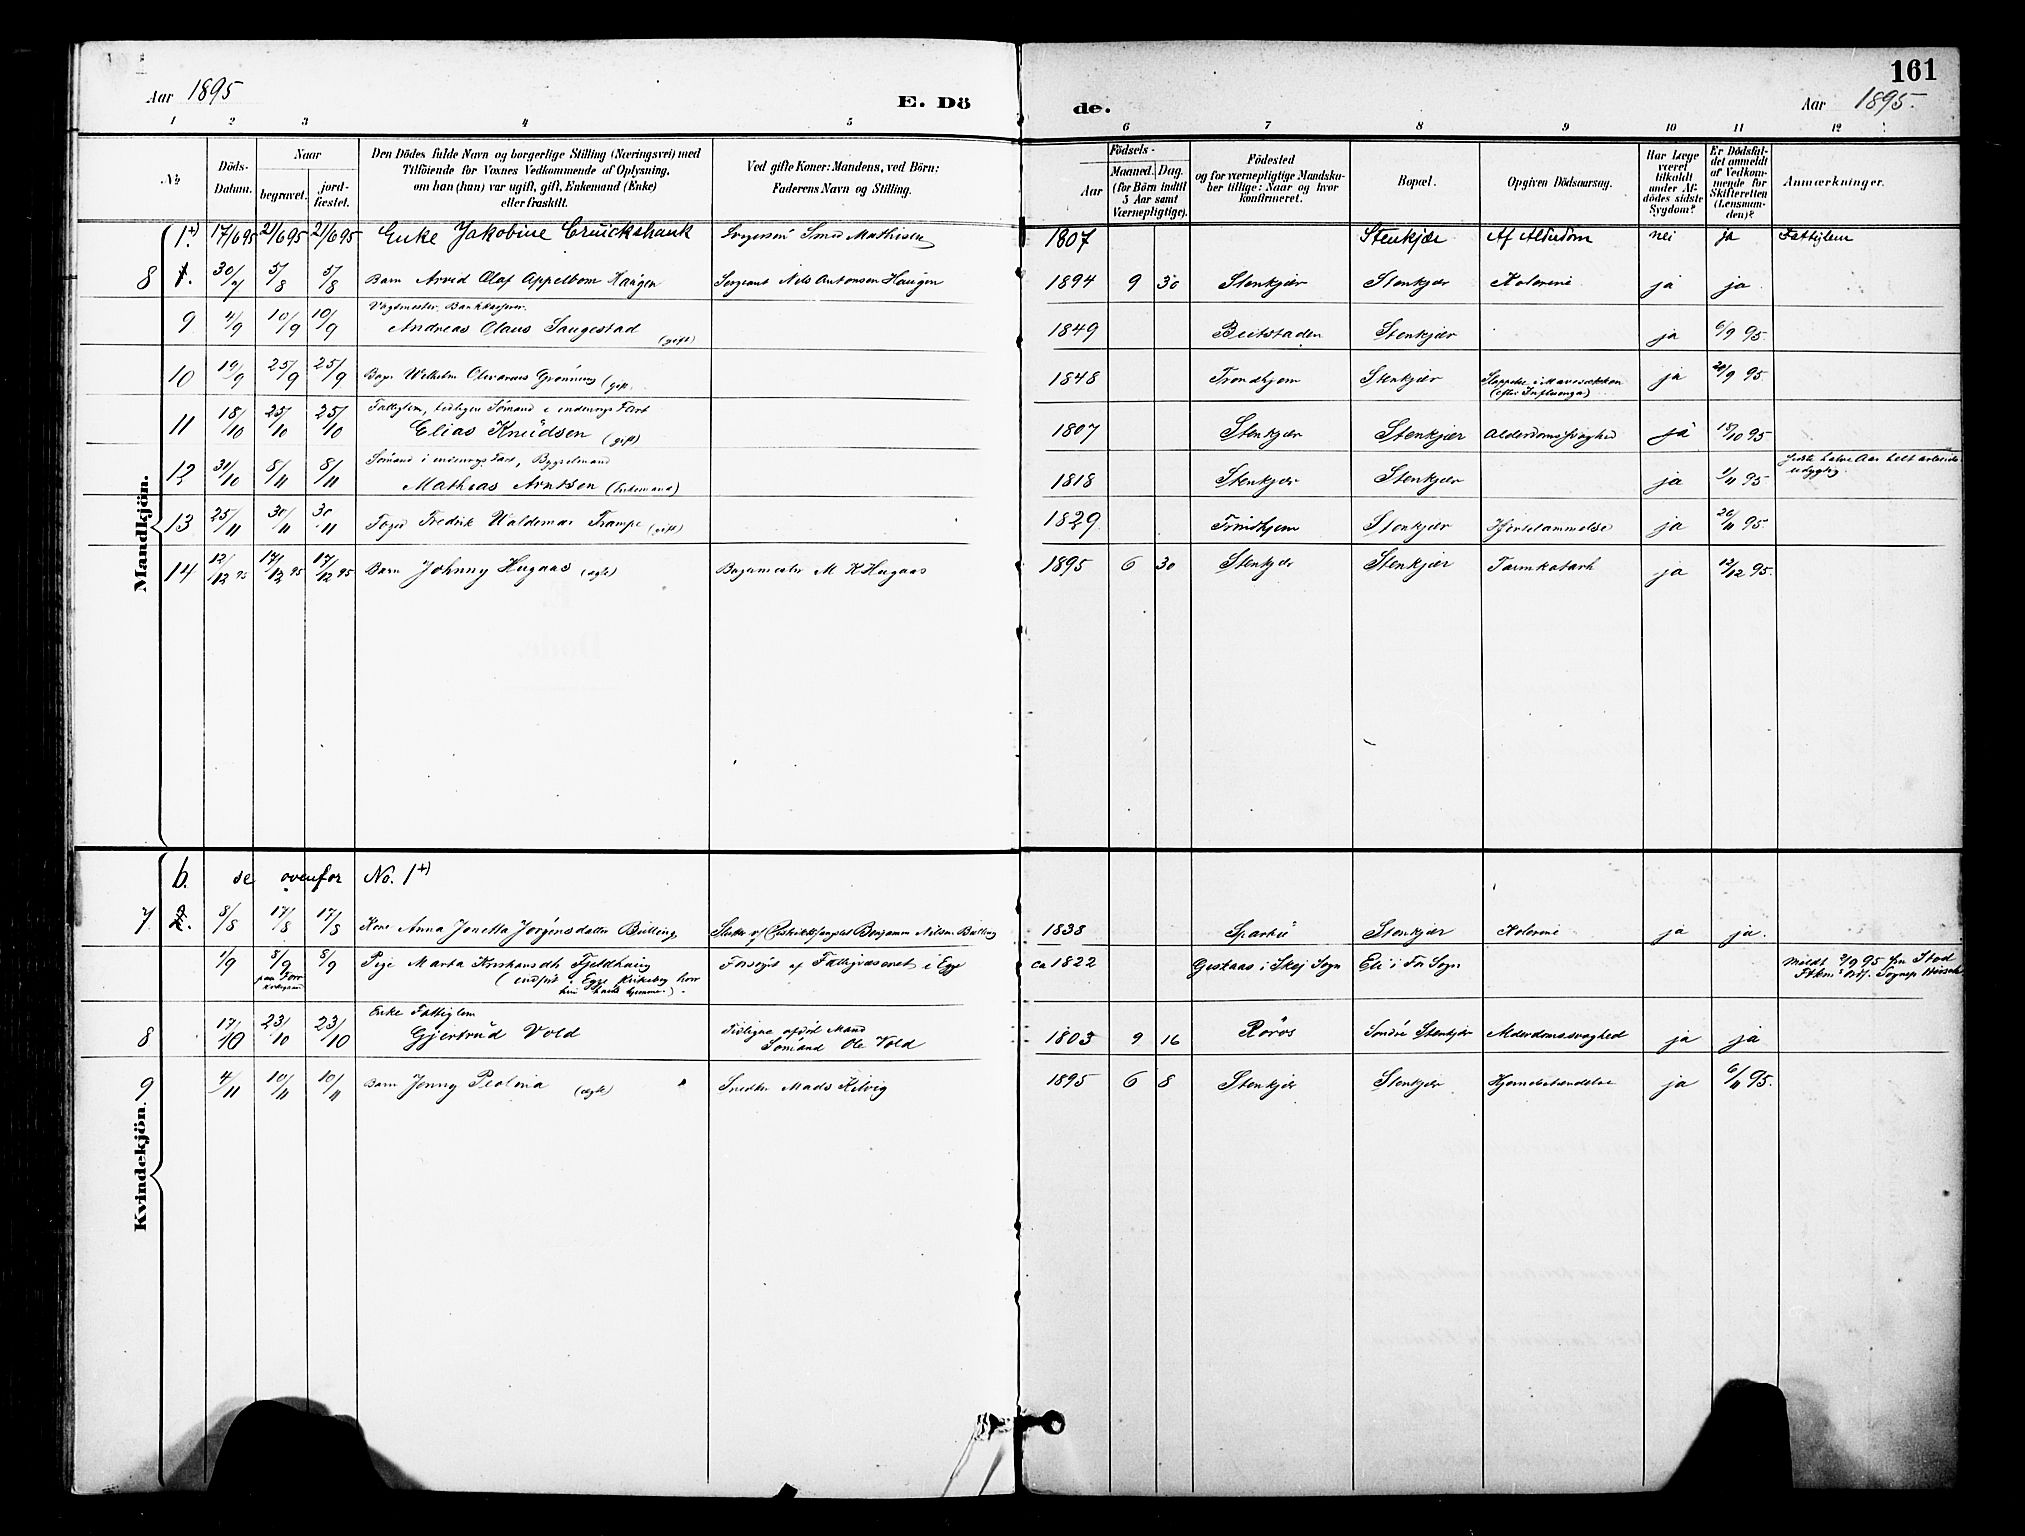 161
Aar 1895
E. Dö
de.
Aar 1895.
1 2 3 4 5 6 7 8 9 10 11 12
No
Döds-Datum.
Naar
begravet.
jord-fæstet.
Den Dödes fulde Navn og borgerlige Stilling (Næringsvei) med
Tilföiende for Voxnes Vedkommende af Oplysning,
om han (hun) var ugift, gift, Enkemand (Enke)
eller fraskilt.
Ved gifte Koner: Mandens, ved Börn:
Faderens Navn og Stilling.
Födsels-
Aar
Maaned.
Dag.
(for Börn indtil
5 Aar samt
Værnepligtige).
Födested
og for værnepligtige Mandsku-
ber tillige: Naar og hvor
konfirmeret.
Bopæl.
Opgiven Dödsaarsag.
Har Læge
været
tilkaldt
under Af-
dödes sidste
Sygdom?
Er Dödsfal-
det anmeldt
af Vedkom-
mende for
Skifteretten
(Lensman-
den)?
Anmærkninger.
Mandkjön.
1+) 17/6 95 21/6 95 21/6 95 Enke Jakobine Cruickshank Smed Mathisen 1807 Stenkjær Af Alderdom nei ja Fattiglem
8 1. 30/7 5/8 5/8 Barn Arvid Olaf Appelbom Haugen Sergeant Nils Antonsen Haugen 1894 9 30 Stenkjær Stenkjær Kolerine ja ja
9 4/9 10/9 10/9 Andreas Claus Saugestad (gift) 1849 Beitstaden Stenkjær ja 6/9 95.
10 19/9 25/9 25/9 Wilhelm Olivarius Grönning (gift. 1848 Trondhjem Stenkjær (efter Influenza) ja 20/9 95.
11 18/10 25/10 25/10 Fattiglem, tidligere Sömand i indenrigs Fart
Elias Knudsen (gift) 1807 Stenkjær Stenkjær Alderdomssvaghed ja 18/10 95
12 30/10 8/11 8/11 Sömand i indenrigs Fart, Bygselmand
Mathias Arntsen (Enkemand) 1818 Stenkjær Stenkjær ja 1/11 95
sidste halve Aar helt arbeids-
udygtig.
13 25/11 30/11 30/11 Foged Fredrik Waldemar Trampe (gift) 1829 Trondhjem Stenkjær Hjertelammelse ja 26/11 95
14 12/12 95 17/12 95 17/12 95 Barn Johnny Hugaas (ægte) Bagermester M K Hugaas 1895 6 30 Stenkjær Stenkjær Tarmkatarh ja 13/12 95.
Kvindekjön.
6. se ovenfor No. 1+)
7 2. 8/8 17/8 17/8 Kone Anna Jonetta Jörgensdatter Bülling Benjamin Nilsen Bülling 1838 Sparbu Stenkjær Kolerine ja ja.
1/9 8/9 8/9 Pige Marta Kristiansdtr Fjeldhaug Forsörget af Fattigvæsenet i Egge ca 1822 Geskaas i Skej Sogn
8 17/10 23/10 23/10 Enke Fattiglem
Gjertrud Vold Tidligere afdöd Mand
Sömand Ole Vold 1803 9 16 Röros Söndre Stenkjær Alderdomssvaghed ja ja
9 4/11 10/11 10/11 Barn Jenny Peolina (ægte) Snedker Mads Kilvig 1895 6 8 Stenkjær Stenkjær Hjernebetændelse ja 6/11 95.